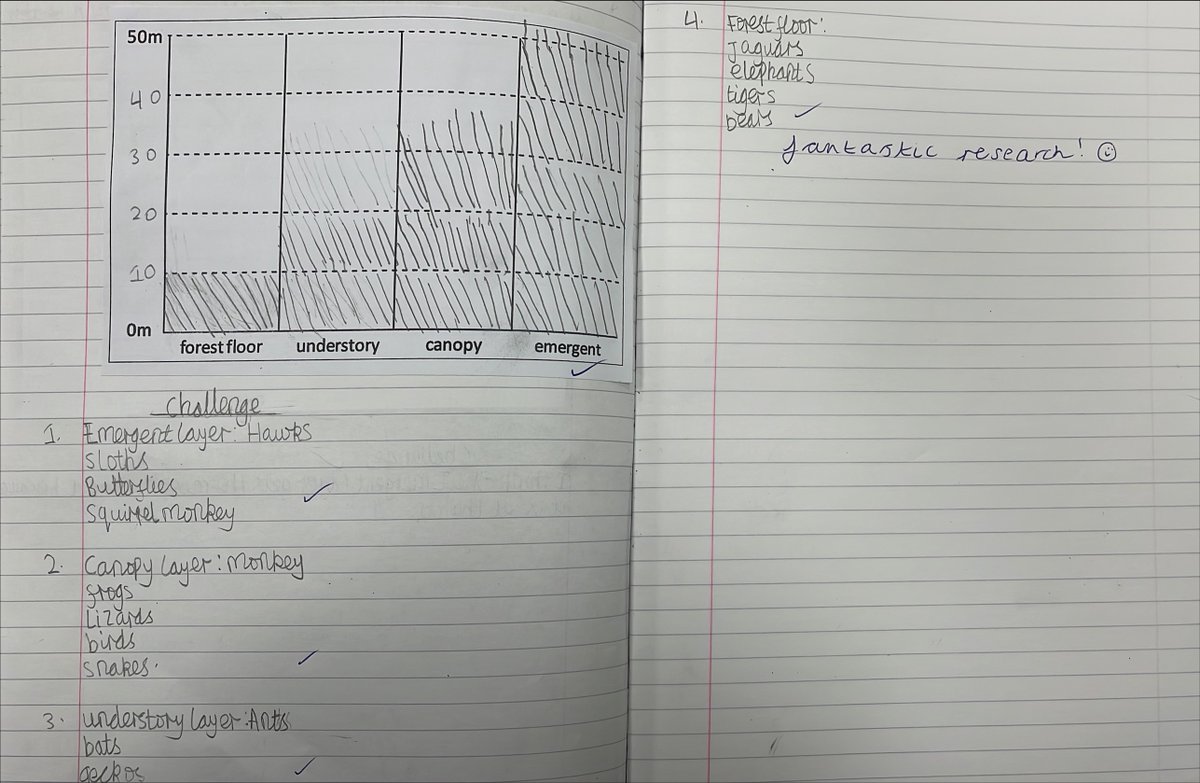 50m
40
30
20
10
0m
forest floor understory canopy emergent
Challenge
1. Emergent Layer: Hawks
Sloths
Butterflies
Squirrel monkey
2. Canopy layer: monkey
frogs
Lizards
birds
snakes.
3. understory layer: Ants
bats
geckos
4. Forest floor:
jaguars
elephants
tigers
bears
fantastic research! ☺